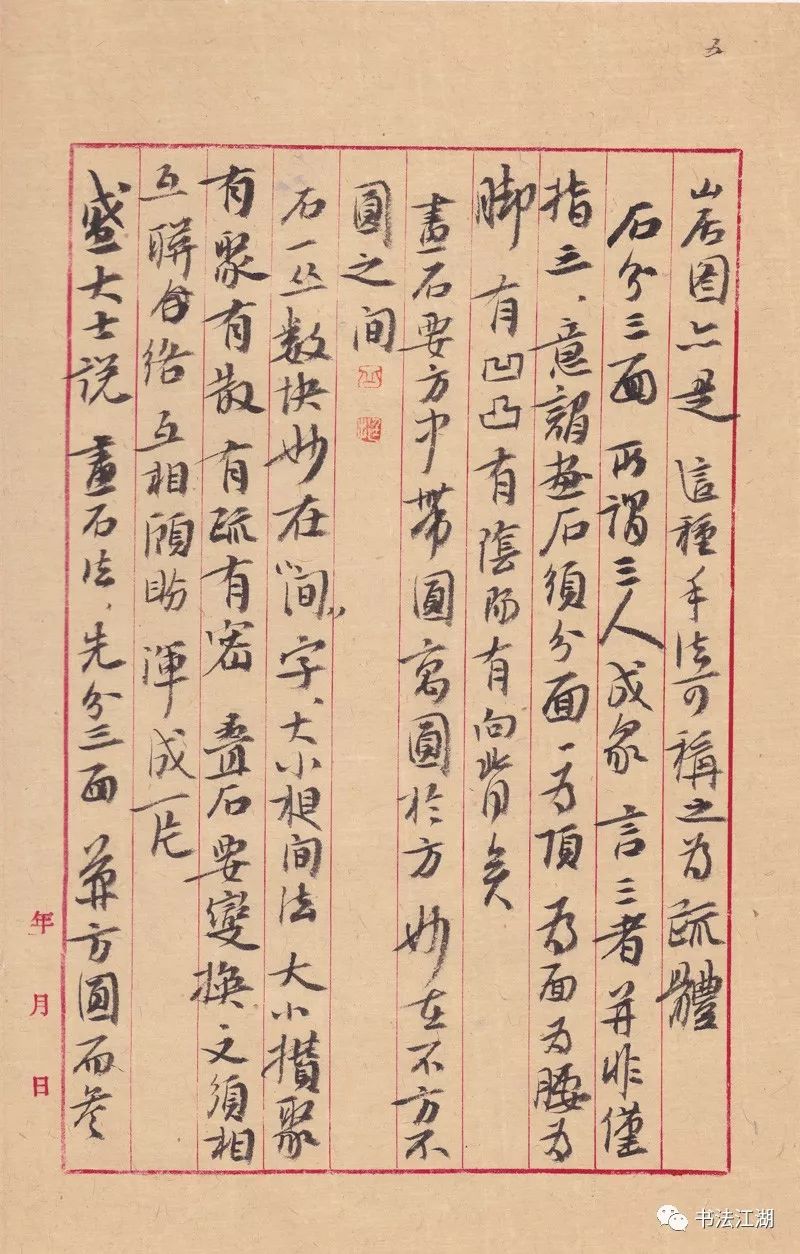 五
山居图亦是 這種手法可稱之为疏體
石分三面 所谓三人成众 言三者并非僅
指三、意謂畫石須分面 一为頂 为面为腰为
脚 有凹凸有陰陽有向背矣
畫石要方中帶圓寓圓於方 妙在不方不
圓之间
石一丛数块妙在“间”字、大小相间法 大小攒聚
有聚有散 有疏有密 叠石要變换 又須相
互联合络 互相顾盼 渾成一片
盛大士说 畫石法、先分三面 兼方圓而参
年 月 日
书法江湖